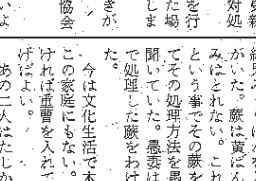 対処
を行
た場
しま
きが
協会
がいた。蕨は黄ばん
みはとれない。これ
という事でその蕨を
てその処理方法を愚
聞いていた。愚委は
で処理した蕨をわけ
た。
今は文化生活で木
この家庭にもない。
ければ重曹を入れて
げばよい。
あの二人はたしか